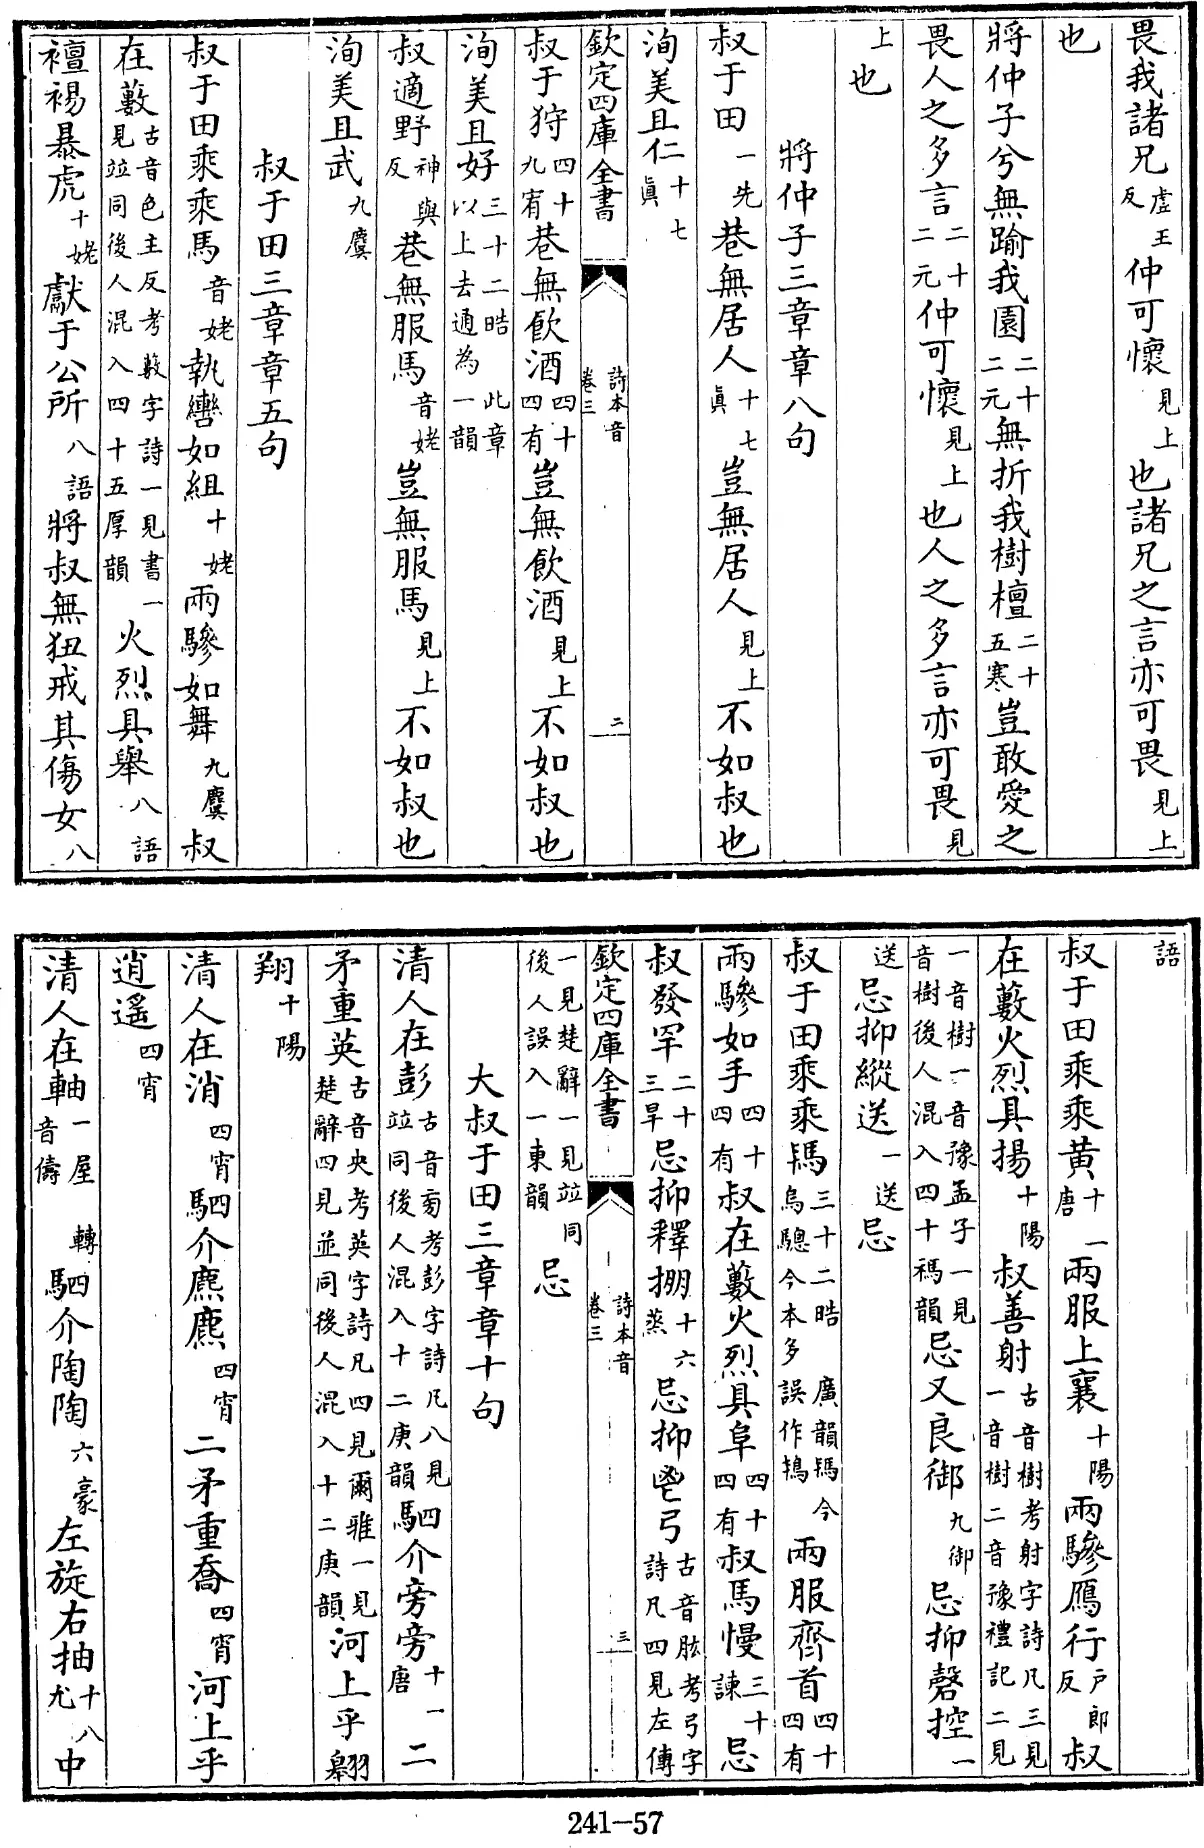 畏我諸兄虛王反仲可懷見上也諸兄之言亦可畏見上
也
將仲子兮無踰我園二十二元無折我樹檀二十五寒豈敢愛之
畏人之多言二十二元仲可懷見上也人之多言亦可畏見
上也
將仲子三章章八句
叔于田一先巷無居人十七眞豈無居人見上不如叔也
洵美且仁十七眞
欽定四庫全書 詩本音 卷三 二
叔于狩四十九宥巷無飲酒四十四有豈無飲酒見上不如叔也
洵美且好三十二晧此章以上去通為一韻
叔適野神與反巷無服馬音姥豈無服馬見上不如叔也
洵美且武九麌
叔于田三章章五句
叔于田乘乘馬音姥執轡如組十姥兩驂如舞九麌叔
在藪古音色主反考藪字詩一見書一見竝同後人混入四十五厚韻火烈具舉八語
襢裼暴虎十姥獻于公所八語將叔無狃戒其傷女八
語
叔于田乘乘黃十一唐兩服上襄十陽兩驂鴈行戶郎反叔
在藪火烈具揚十陽叔善射古音樹考射字詩凡三見一音樹二音豫禮記二見
一音樹一音豫孟子一見音樹後人混入四十禡韻忌又良御九御忌抑磬控一
送忌抑縱送一送忌
叔于田乘乘鴇三十二晧廣韻䮵今烏驄今本多誤作鴇兩服齊首四十四有
兩驂如手四十四有叔在藪火烈具阜四十四有叔馬慢三十諫忌
叔發罕二十三旱忌抑釋掤十六蒸忌抑鬯弓古音肱考弓字詩凡四見左傳
欽定四庫全書 詩本音 卷三 三
一見楚辭一見竝同後人誤入一東韻忌
大叔于田三章章十句
清人在彭古音旁考彭字詩凡八見竝同後人混入十二庚韻駟介旁旁十一唐二
矛重英古音央考英字詩凡四見爾雅一見楚辭四見並同後人混入十二庚韻河上乎翱
翔十陽
清人在消四宵駟介麃麃四宵二矛重喬四宵河上乎
逍遙四宵
清人在軸一屋轉音儔駟介陶陶六豪左旋右抽十八尤中
241-57